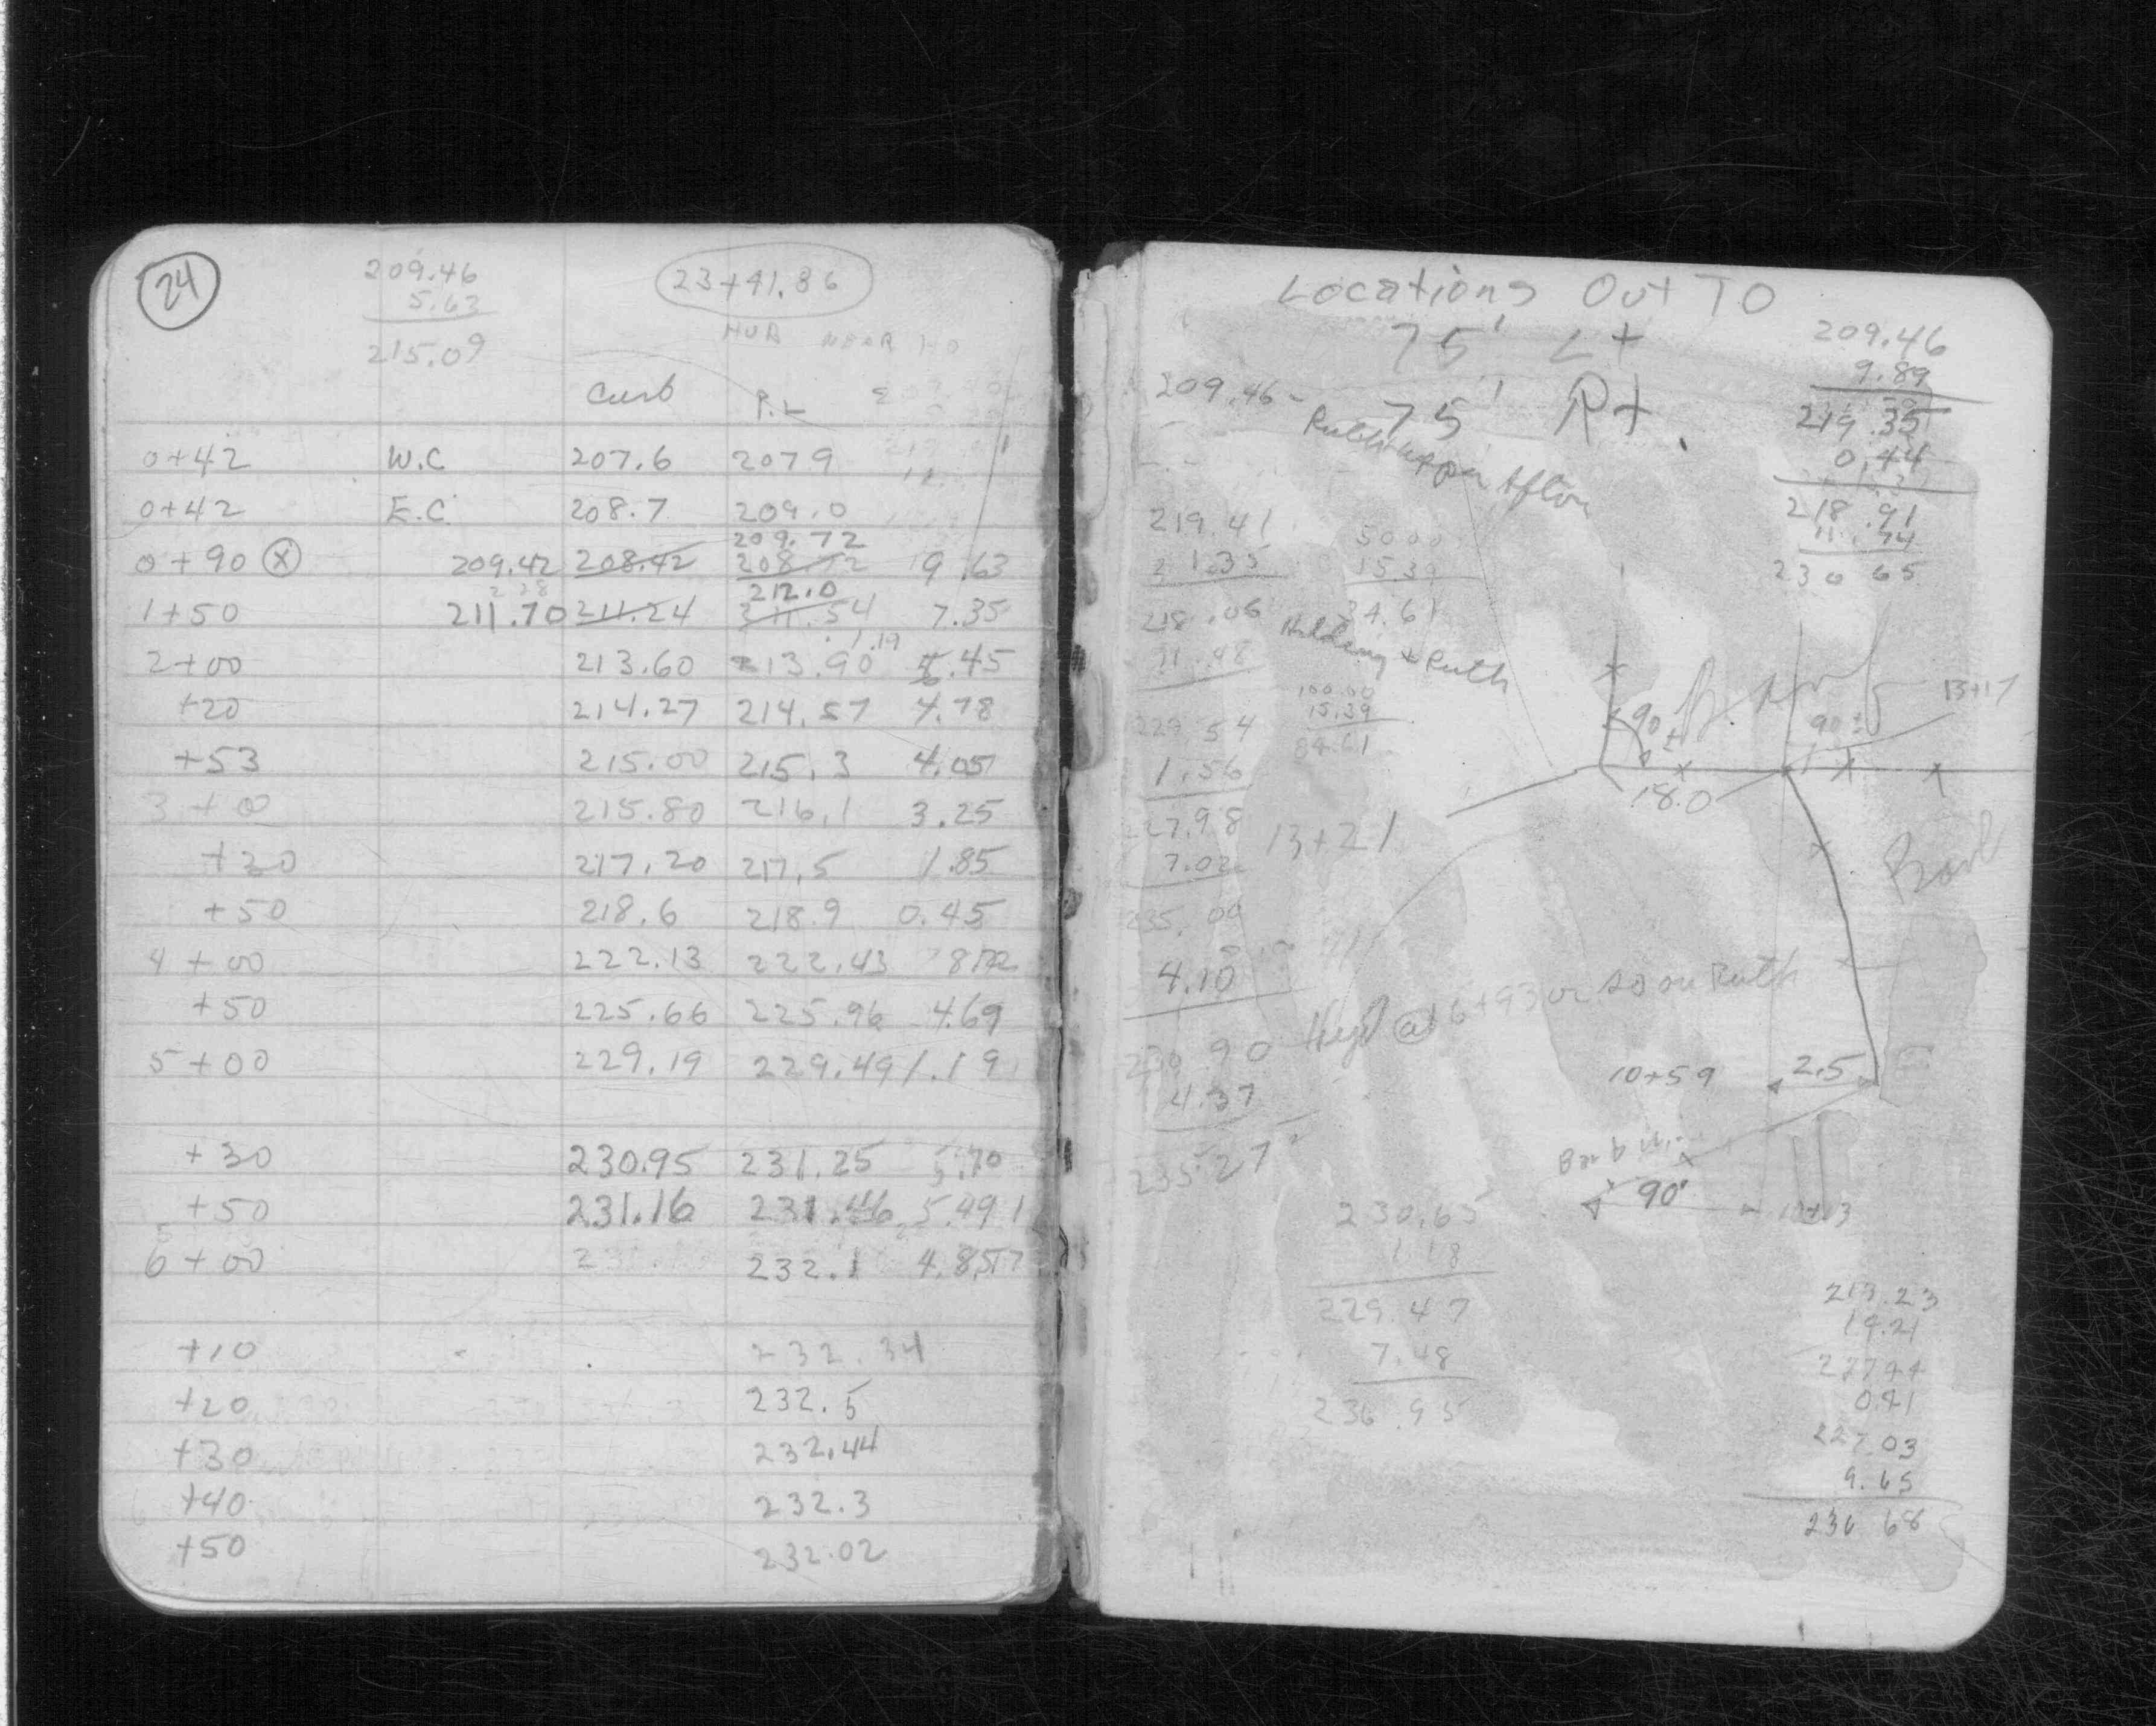 24
209.46
5.63
215.09
23+41.86
HUB NEAR
Curb P.L
0+42 W.C 207.6 207.9
0+42 E.C. 208.7 209.0
209.72
0+90 X 209.42 208.42 208.72 9.63
212.0
1+50 211.70 211.24 211.54 7.35
1.19
2+00 213.60 213.90 5.45
+20 214.27 214.57 4.78
+53 215.00 215.3 4.05
3+00 215.80 216.1 3.25
+30 217.20 217.5 1.85
+50 218.6 218.9 0.45
4+00 222.13 222.43
+50 225.66 225.96 4.69
5+00 229.19 229.49 1.19
+30 230.95 231.25 5.70
+50 231.16 231.46 5.49
6+00 232.1 4.85
+10 232.34
+20 232.5
+30 232.44
+40 232.3
+50 232.02
Locations Out To
75' Lt
75' Rt.
209.46
9.89
219.35
0.44
218.91
11.74
230 65
209.46 -
Ruth + upper Afton
219.41
1.35
218.06
11.48
229 54
1.56
227.98
7.02
235.00
4.10
230 90
4.37
235.27
50 00
15 39
34.61
Hilding + Ruth
100.00
15.39
84.61
13+17
90 ±
90 ±
18.0
13+21
Hyd @ 6+93 or so on Ruth
10+59
2.5
90°
230.65
1.18
229.47
7.48
236.95
213.23
14.21
227 44
0.41
227.03
9.65
236 68